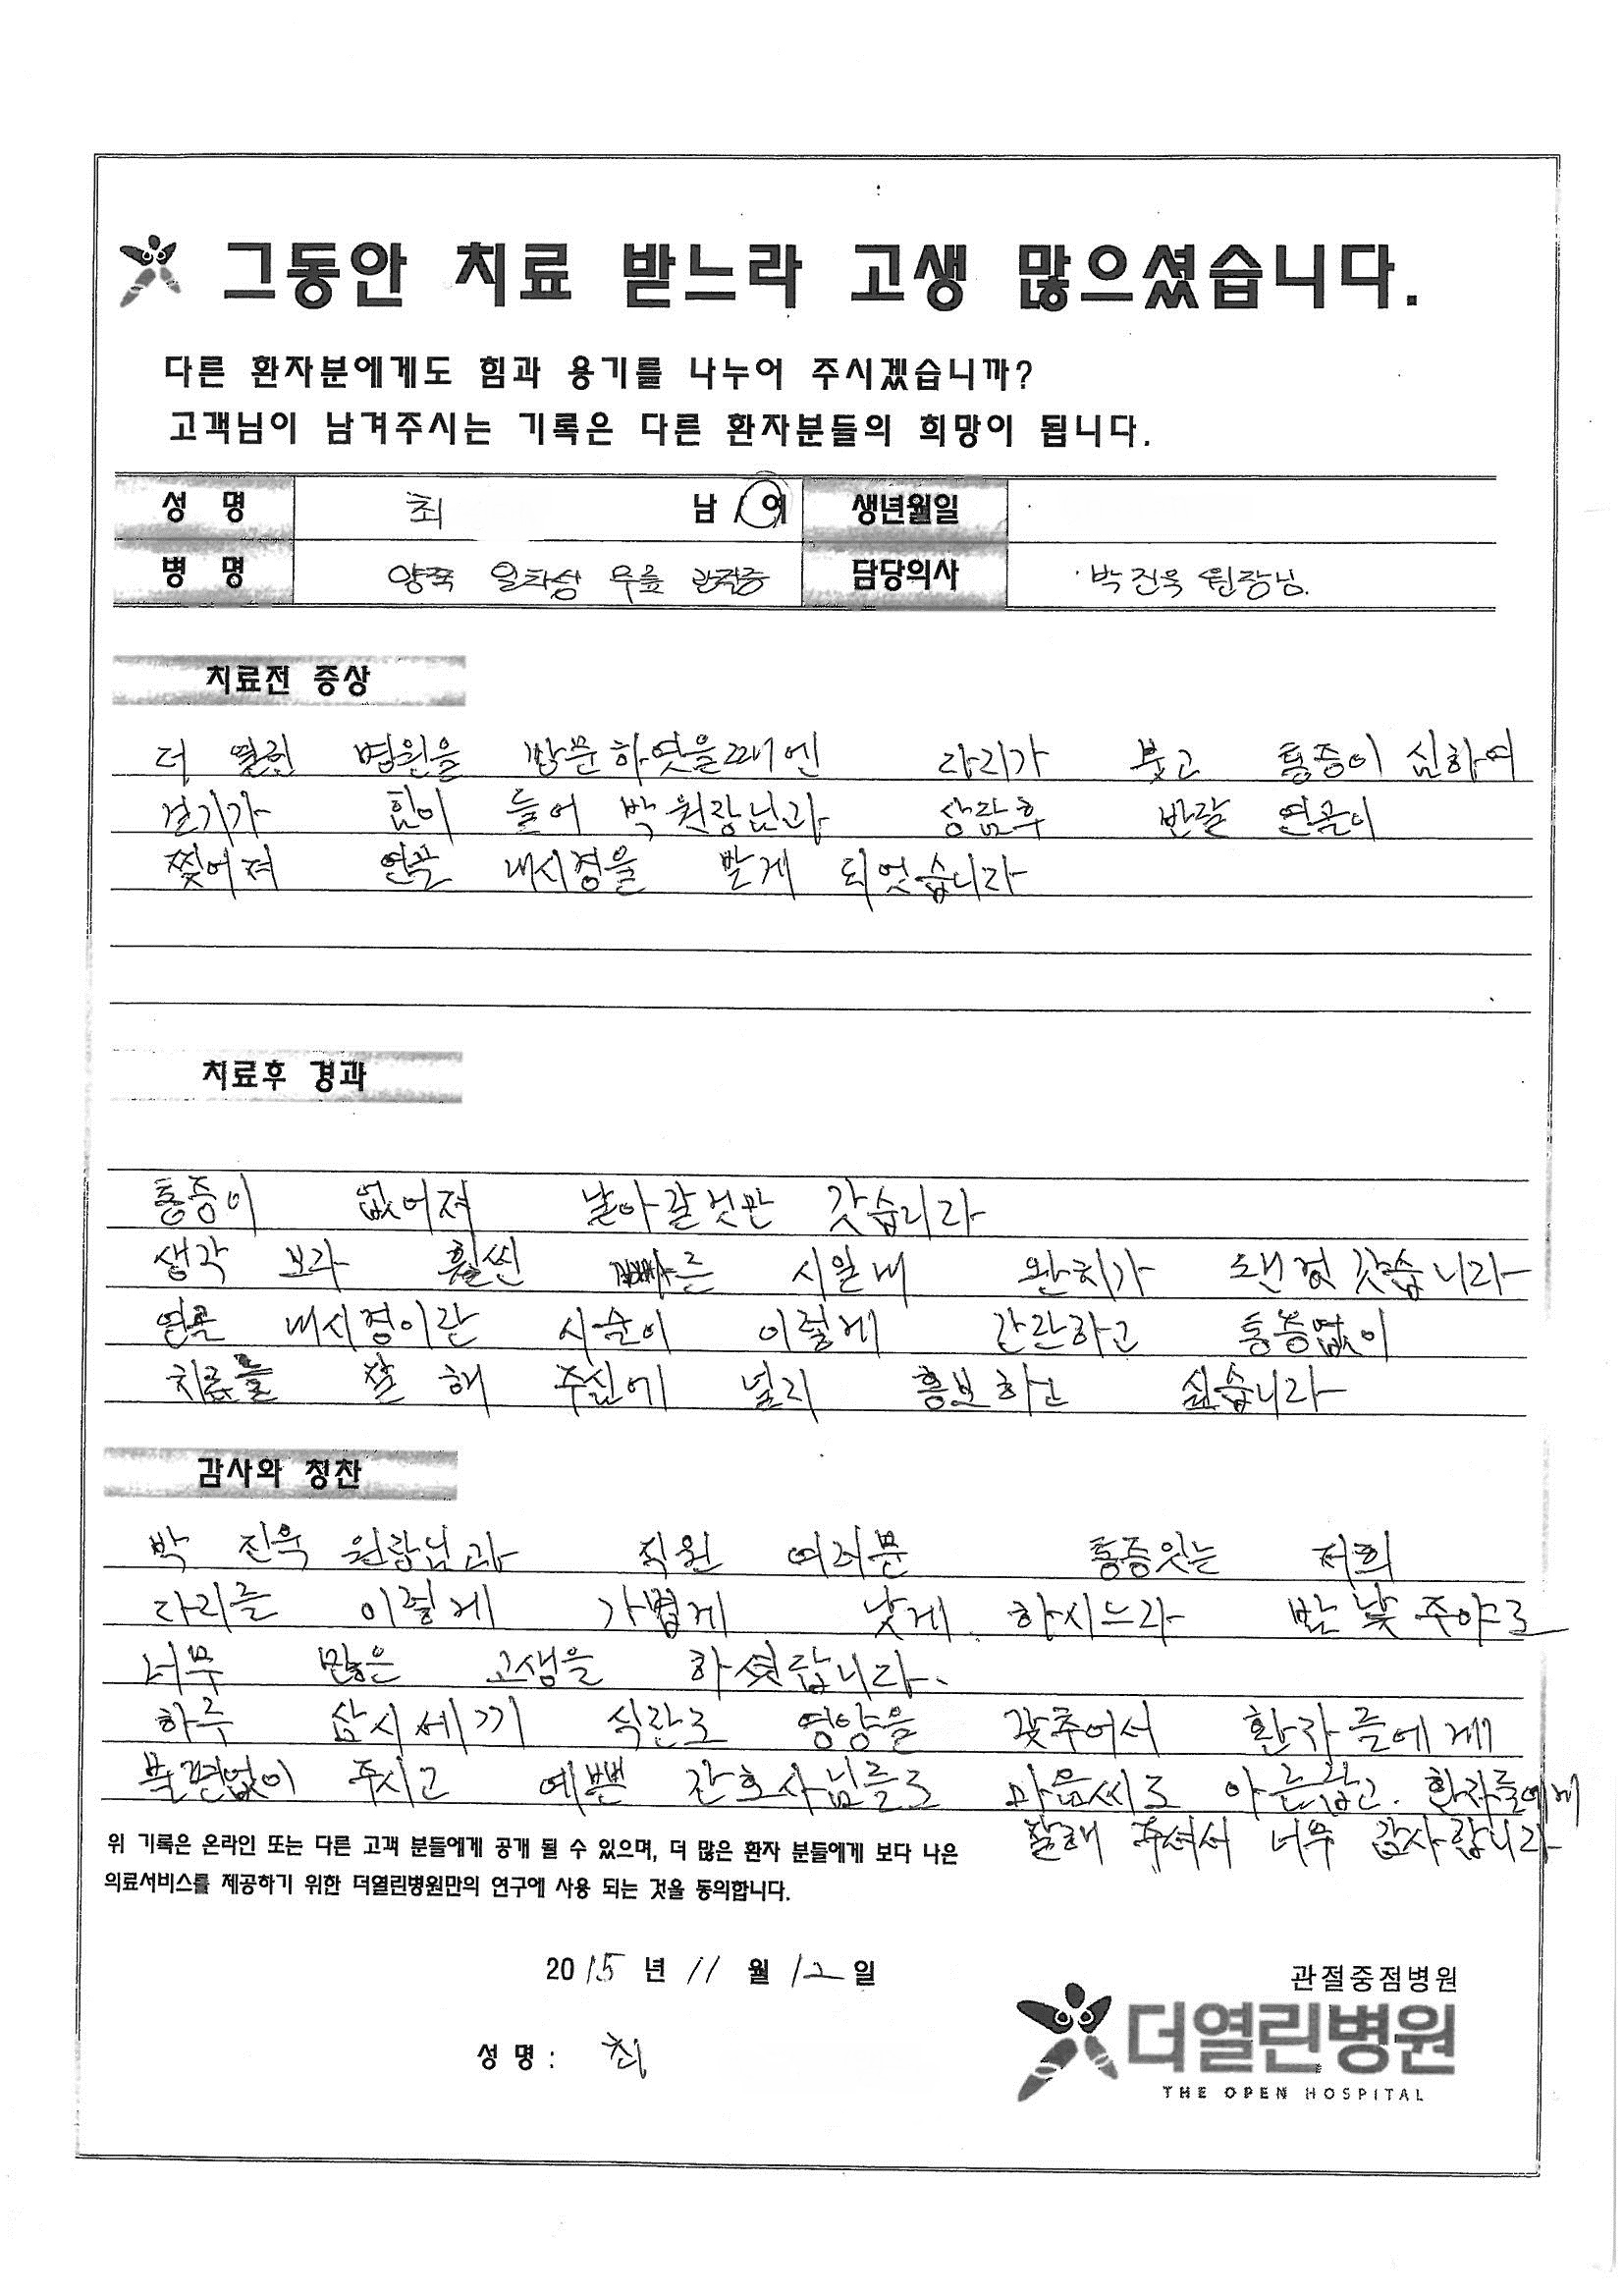 그동안 치료 받느라 고생 많으셨습니다.
다른 환자분에게도 힘과 용기를 나누어 주시겠습니까?
고객님이 남겨주시는 기록은 다른 환자분들의 희망이 됩니다.
성 명 최 남 / 여 생년월일
병 명 양쪽 일차성 무릎 관절증 담당의사 박진욱 원장님.
치료전 증상
더 열린 병원을 방문하엿을때엔 다리가 붓고 통증이 심하여
걷기가 힘이 들어 박 원장님과 상담후 반달 연골이
찢어져 연골 내시경을 받게 되엇습니다
치료후 경과
통증이 없어져 날아갈것만 갓습니다
생각 보다 훨씬 빠른 시일내 완치가 됀것 갓습니다
연골 내시경이란 시술이 이렇게 간단하고 통증없이
치료를 잘 해 주심에 널리 홍보하고 싶습니다
감사와 칭찬
박 진욱 원장님과 직원 여러분 통증잇는 저희
다리를 이렇게 가볍게 낫게 하시느라 밤낮 주야로
너무 많은 고생을 하셧답니다.
하루 삼시세끼 식단도 영양을 갖추어서 환자들에게
불편없이 주시고 예쁜 간호사님들도 마음씨도 아름답고. 환자들에게
잘해 주셔서 너무 감사합니다
위 기록은 온라인 또는 다른 고객 분들에게 공개 될 수 있으며, 더 많은 환자 분들에게 보다 나은
의료서비스를 제공하기 위한 더열린병원만의 연구에 사용 되는 것을 동의합니다.
2015 년 11 월 12 일
성 명 : 최
관절중점병원
더열린병원
THE OPEN HOSPITAL